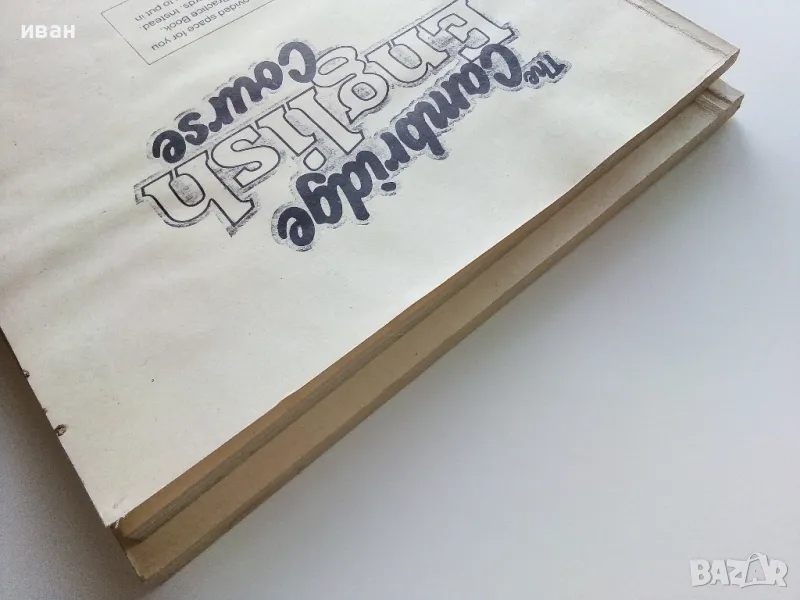 иван
The Cambridge
English
Course
ovided space for you
ractice Book.
rds. Instead
to put in
BAZAR